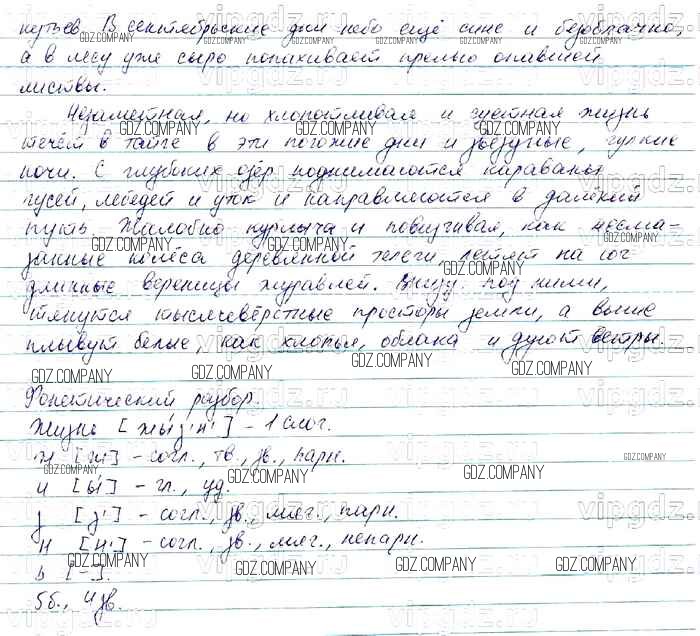 кутьев. В сентябрьские дни небо ещё сине и безоблачно,
а в лесу уже сыро попахивает прелью опавшей
листвы.
Незаметная, но хлопотливая и суетная жизнь
течёт в тайге в эти погожие дни и звёздные, гулкие
ночи. С глубоких озёр поднимаются караваны
гусей, лебедей и уток и направляются в далёкий
путь. Жалобно курлыча и повизгивая, как несма-
занные колёса деревянной телеги, летят на юг
длинные вереницы журавлей. Внизу, под ними,
тянутся тысячевёрстные просторы земли, а выше
плывут белые, как хлопья, облака и дуют ветры.
Фонетический разбор.
Жизнь [жы́з'н'] - 1 слог.
ж [ж] - согл., тв., зв., парн.
и [ы́] - гл., уд.
з [з'] - согл., зв., мяг., парн.
н [н'] - согл., зв., мяг., непарн.
ь [-]
5 б., 4 зв.
GDZ.COMPANY
vipgdz.ru